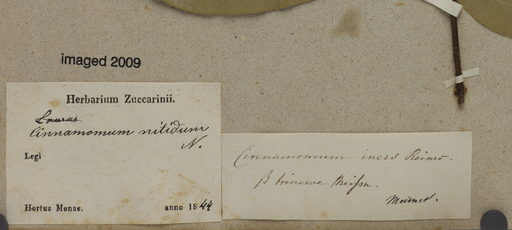 imaged 2009
Herbarium Zuccarinii.
Laurus
Cinnamomum nitidum
N.
Legi
Hortus Monac. anno 1844
Cinnamomum iners Reinw.
β trinerve Meissn.
Meisner.